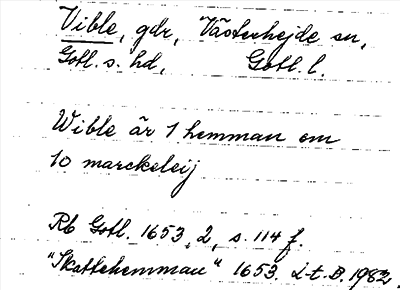 Vible, gdr, Västerhejde sn,
Gotl. s. hd, Gotl. l.
Wible är 1 hemman om
10 marckeleij
Rb Gotl. 1653, 2, s. 114 f.
"Skattehemman" 1653. L-t. B. 1982.